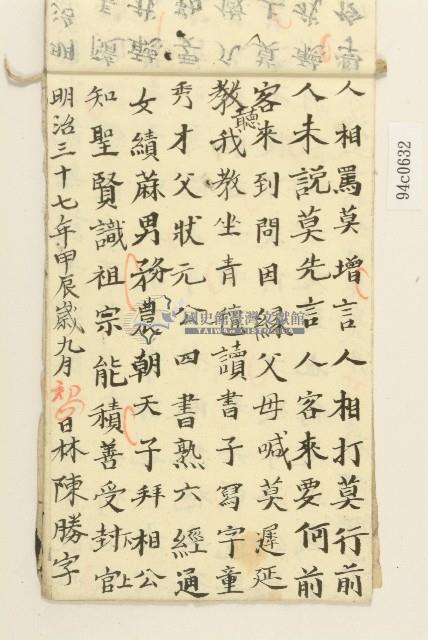 人相罵莫增言人相打莫行前
人未說莫先言人客來要何前
客來到問因緣父母喊莫遲延
教聽我教坐青讀書子寫字童
秀才父狀元公四書熟六經通
女績蔴男務農朝天子拜相公
知聖賢識祖宗能積善受封官
下上
明治三十七年甲辰歲九月 日林陳勝字
94c0632
國史館臺灣文獻館